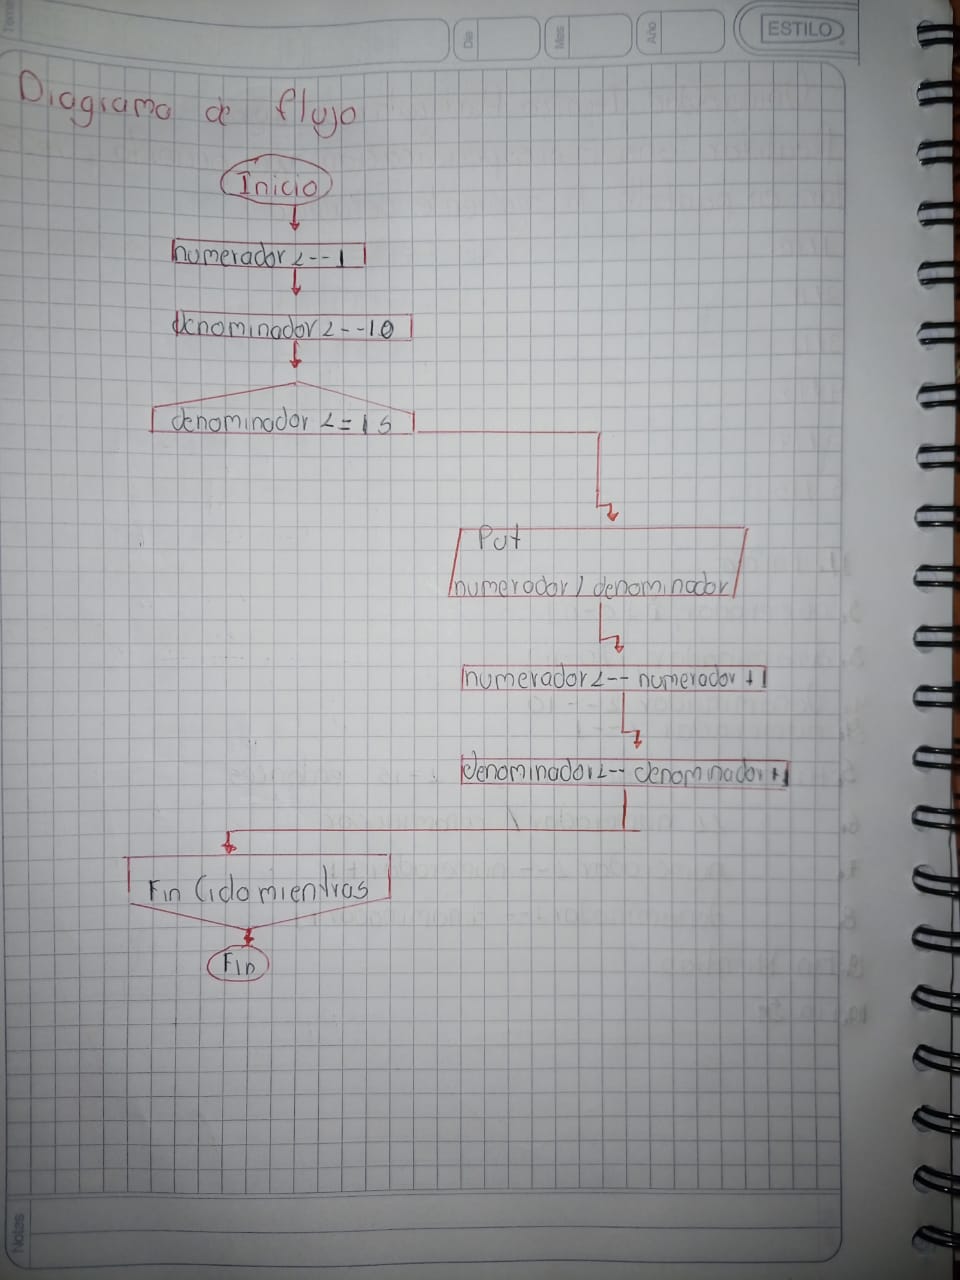 Tema
Dia
Mes
Año
ESTILO
Diagrama de flujo
Inicio
numerador <-- 1
denominador <-- 10
denominador <= 15
Put
numerador / denominador
numerador <-- numerador + 1
denominador <-- denominador + 1
Fin Ciclo mientras
Fin
Notas